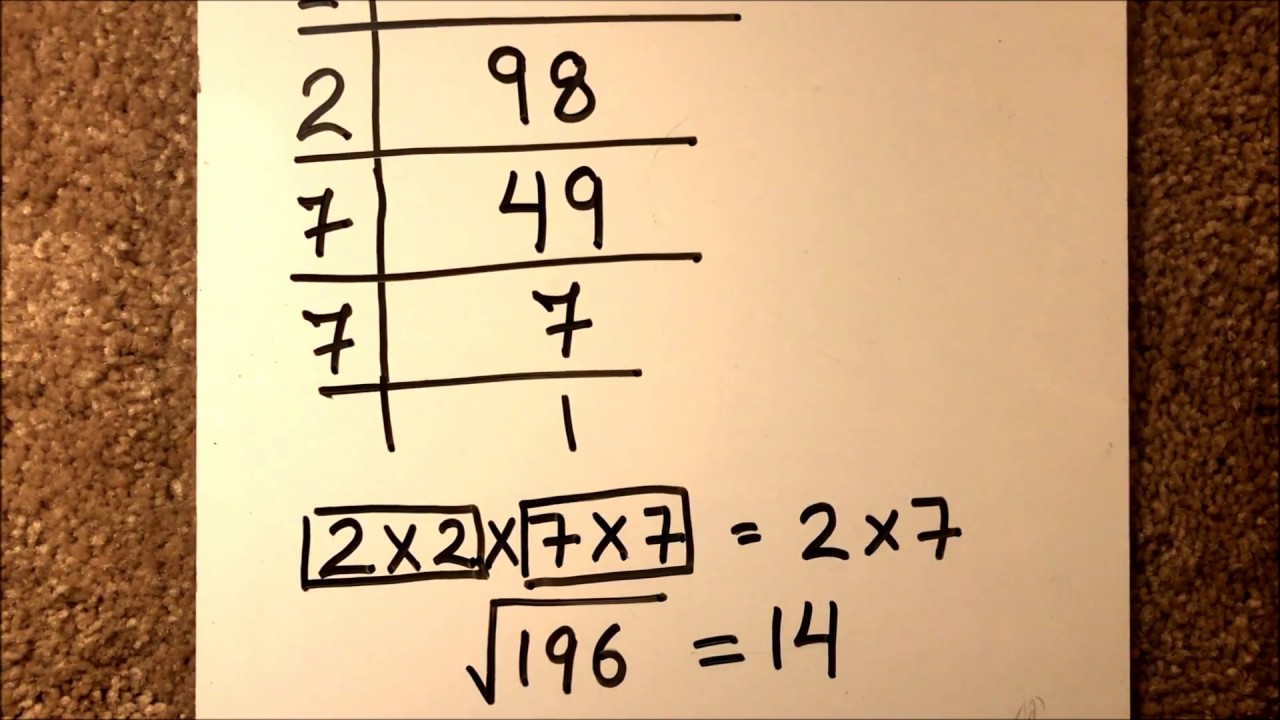 2 98
7 49
7 7
1
2×2×7×7 = 2×7
√196 = 14